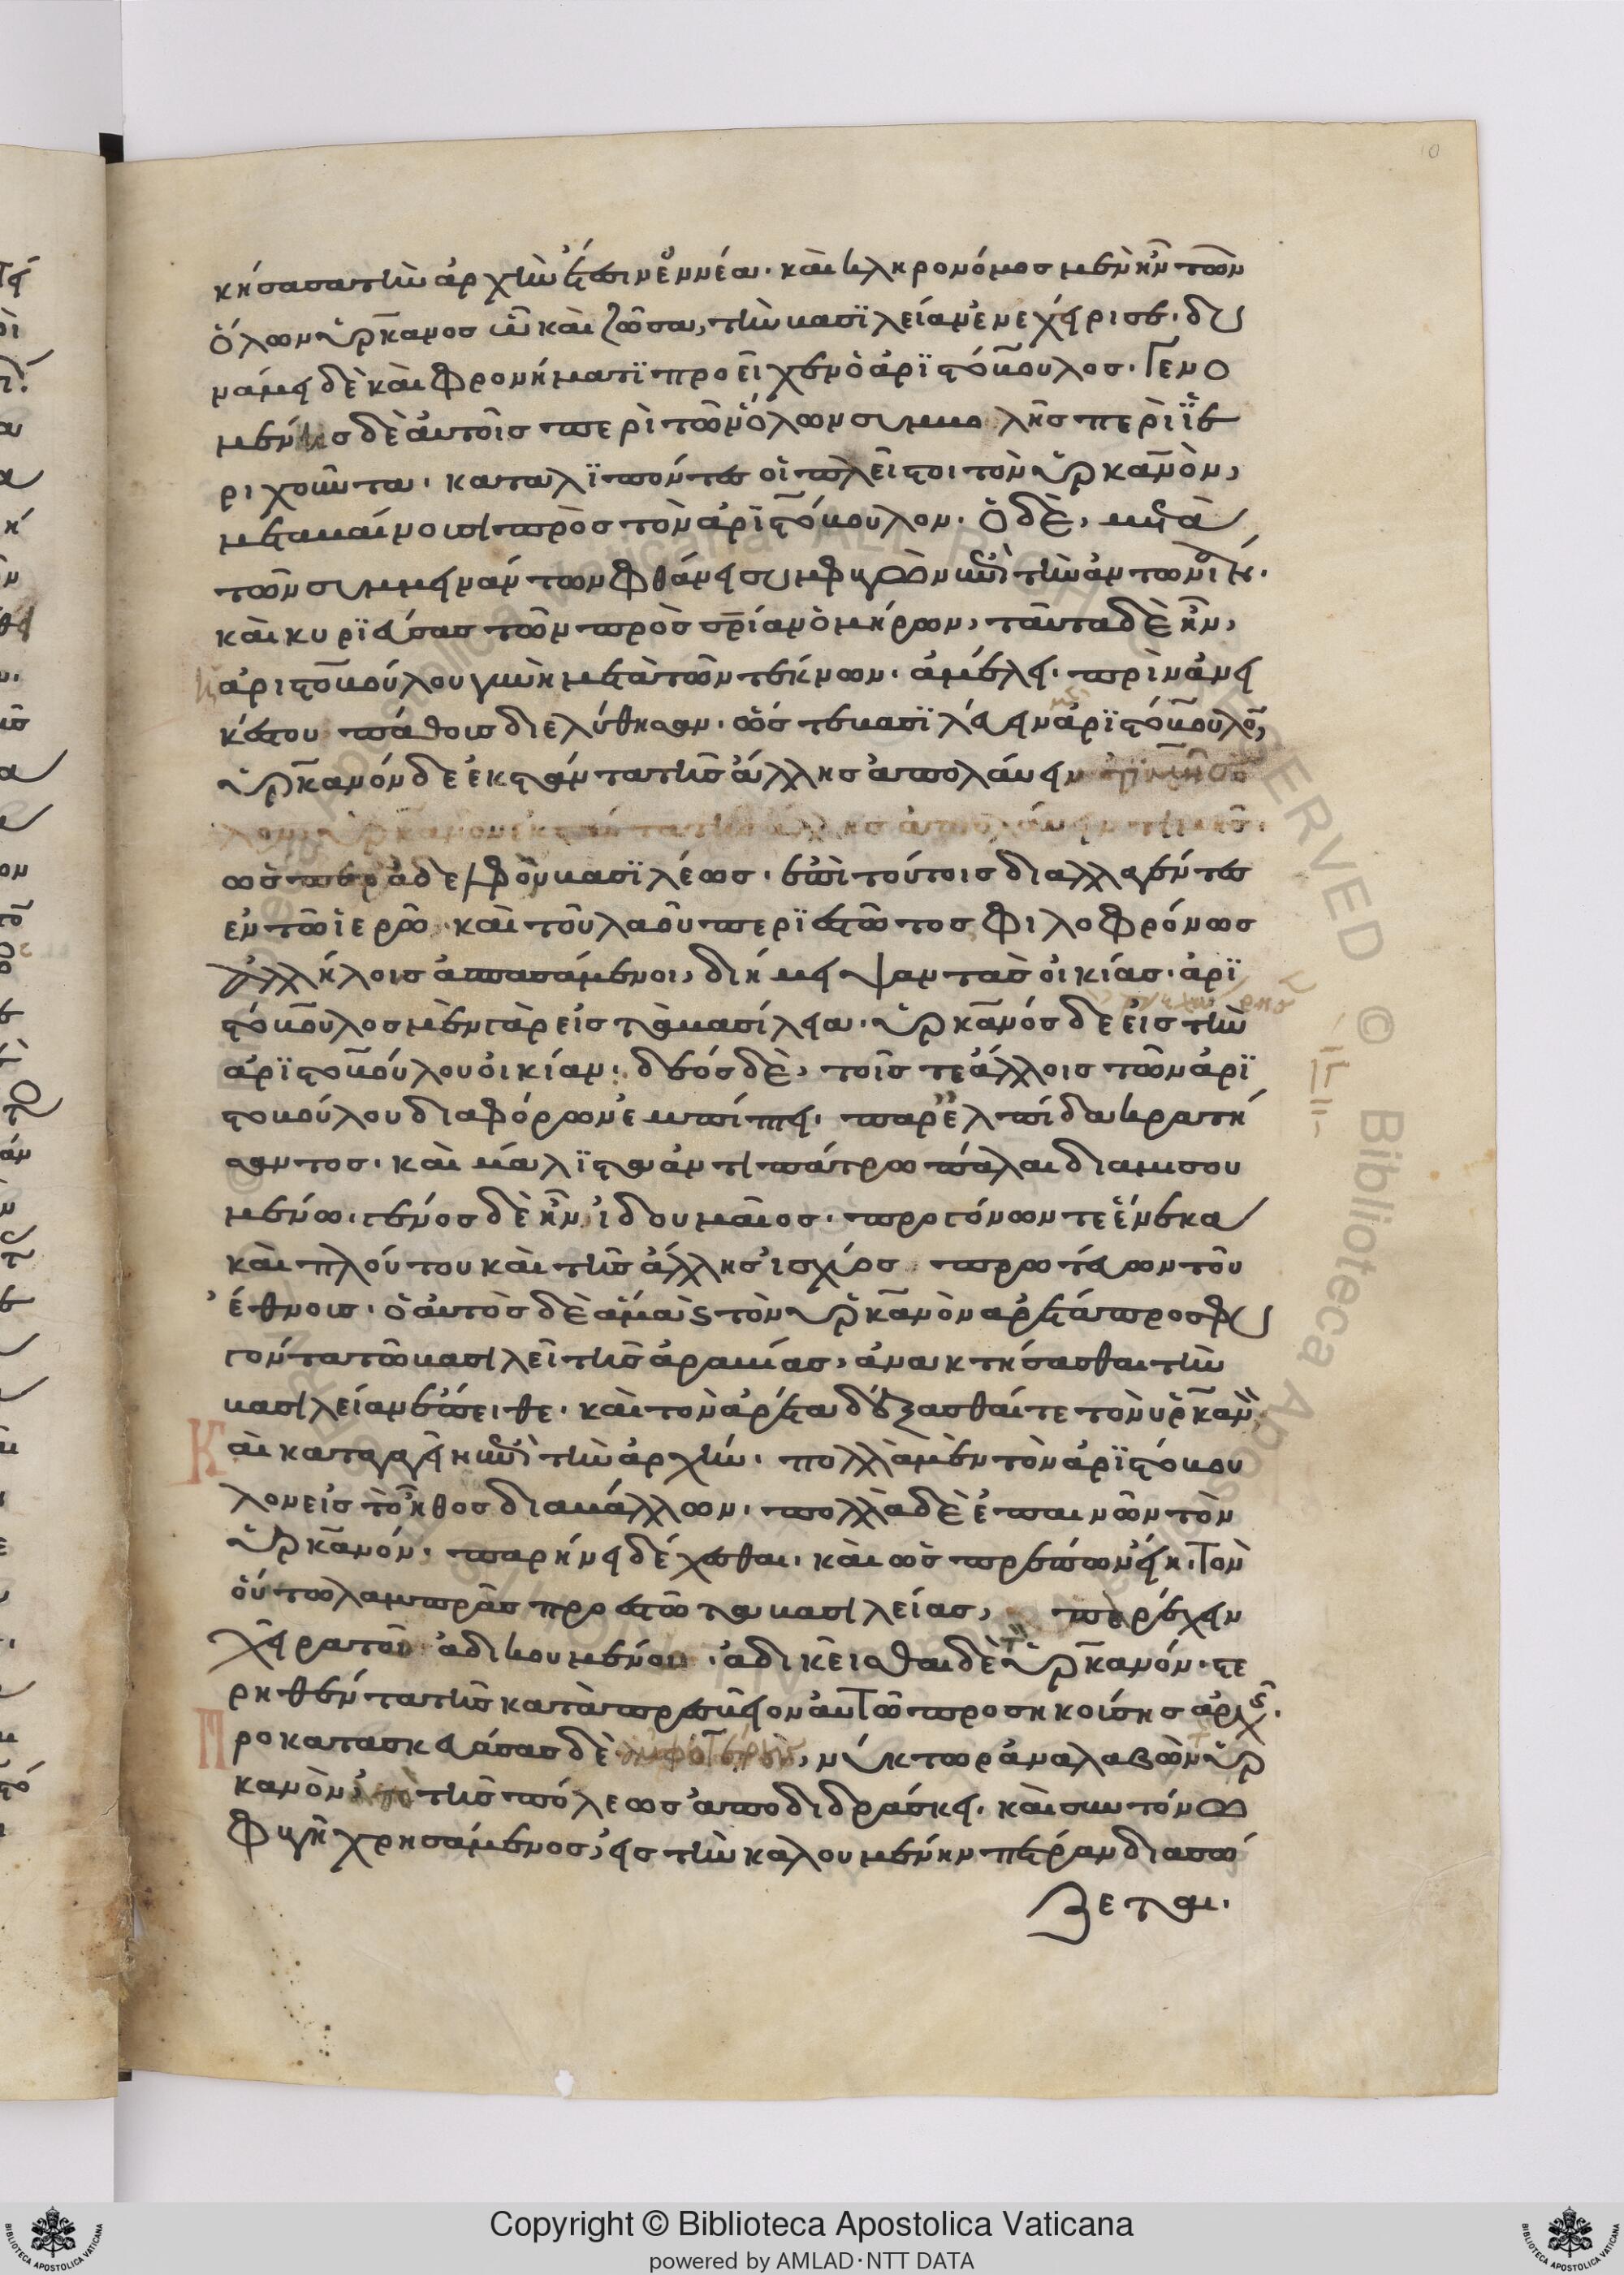 κήσασα τὴν ἀρχὴν ἔτεσιν ἐννέα· καὶ κληρονόμος μὲν ἦν τῶν
ὅλων ὑρκανος ὧ καὶ ζῶσα, τὴν βασϊλείαν ἐνεχείρισε· δυ
νάμει δὲ καὶ φρονήματϊ προεῖχεν ὁ ἀρϊστόβουλος· Γενο
μένης δὲ αὐτοῖς περὶ τῶν ὅλων συμβολῆς περὶ ϊε
ριχοῦντα· καταλϊπόντες οἱ πλεῖστοι τὸν ὑρκανὸν,
μεταβαίνουσι πρὸς τὸν ἀρϊστόβουλον· Ὁ δὲ, μετὰ
τῶν συμμεινάντων φθάνει συμφυγὼν ἐπὶ τὴν ἀντωνίαν·
καὶ κυρϊεύσας τῶν πρὸς σρίαν ὁμήρων, ταῦτα δὲ ἦν,
ἀριστοβούλου γυνὴ μετὰ τῶν τέκνων· ἀμέλει· πρὶν ἀνη
κέστου πάθους διελύθησαν· ὥστε βασϊλεύειν ἀρϊστόβουλον,
ὑρκανόν δε ἐκστάντα τῆς ἄλλης ἀπολαύειν
λον ὑρκανον ἐκστάντα τῆς ἄλλης ἀπολαύειν τιμῆς·
ὡσπερ ἀδελφὸν βασϊλέως· ἐπὶ τούτοις διαλλαγέντες
ἐν τῶ ἱερῶ· καὶ τοῦ λαοῦ περϊεστῶτος φιλοφρόνως
ἀλλήλους ἀσπασάμενοι, διήμειψαν τὰς οἰκίας· ἀρϊ
στόβουλος μὲν γὰρ εἰς τὰ βασίλεια· ὑρκανός δὲ εἰς τὴν
ἀρϊστοβούλου οἰκίαν· δέος δὲ, τοῖς τε ἄλλοις τῶν ἀρϊ
στοβούλου διαφόρων ἐμπίπτει· παρ' ἐλπίδα κρατή
σαντος· καὶ μάλϊστα ἀντιπάτρω πάλαι διαμισου
μένω· γένος δὲ ἦν ἰδουμαῖος· προγόνων τε ἕνεκα
καὶ πλούτου καὶ τῆς ἄλλης ἰσχύος πρωτεύων τοῦ
ἔθνους· ὁ αὐτὸς δὲ ἅμα καὶ τὸν ὑρκανὸν ἀρέτα προσφυ
γόντα τῶ βασιλεῖ τῆς ἀραβίας, ἀνακτήσασθαι τὴν
βασιλείαν ἔπειθε· καὶ τὸν ἀρέταν δέξασθαί τε τὸν ὑρκανὸν·
Καὶ καταγαγεῖν ἐπὶ τὴν ἀρχὴν· πολλὰ μὲν τὸν ἀρϊστόβου
λον εἰς τὸ ἦθος διαβάλλων· πολλὰ δὲ ἐπαινῶν τὸν
ὑρκανόν· παρήνει δέχεσθαι· καὶ ὡς πρέπον εἴη· Τὸν
οὕτω λαμπρᾶς προεστῶτα βασιλείας, ὑπερέχειν
χεῖρα τοῦ ἀδικουμένου· ἀδικεῖσθαι δὲ ὑρκανόν· στε
ρηθέντα τῆς κατὰ πρεσβεῖον αὐτῶ προσηκούσης ἀρχῆς·
Προκατασκευάσας δὲ ἀμφοτέρους, νύκτωρ ἀναλαβὼν ὑρ
κανὸν, ἀπὸ τῆς πόλεως ἀποδιδράσκει· καὶ συντόνω
φυγῆ χρησάμενος, εἰς τὴν καλουμένην πέτραν διασώ
ζεται·